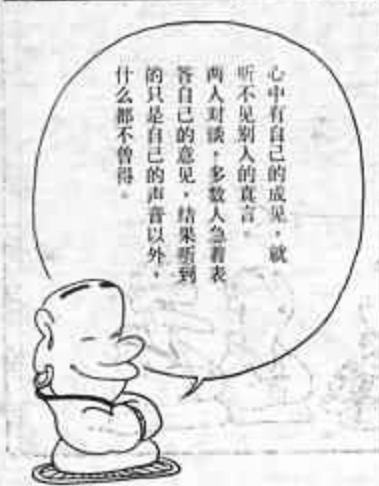 心中有自己的成见，就
听不见别人的真言。
两人对谈，多数人急着表
答自己的意见，结果听到
的只是自己的声音以外，
什么都不曾得。